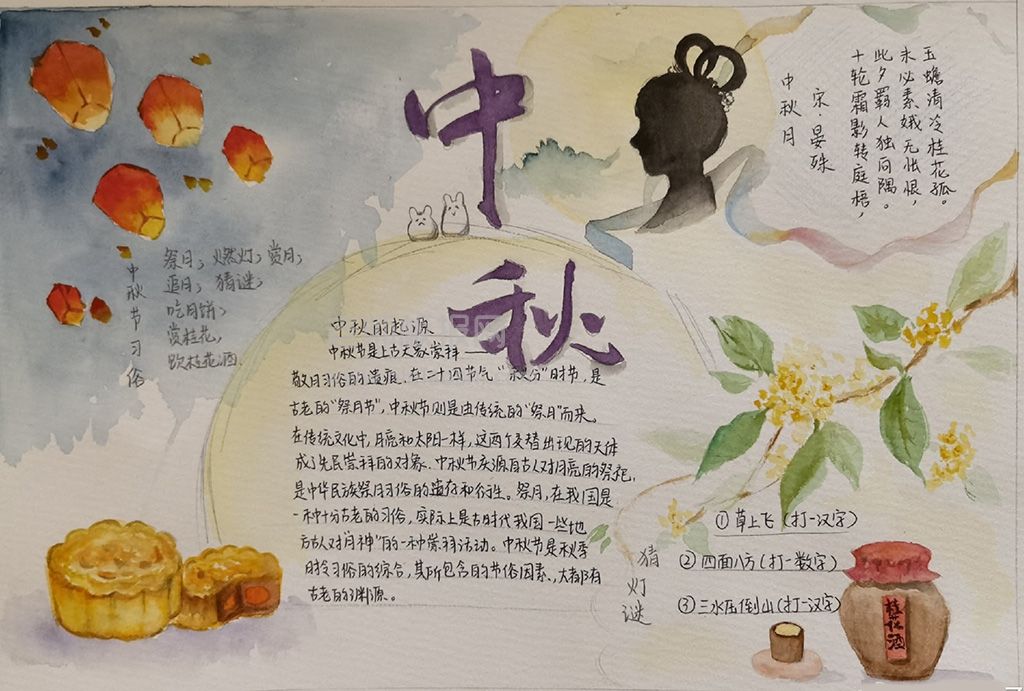 中
秋
玉蟾清冷桂花孤。
未必素娥无怅恨，
此夕羁人独向隅。
十轮霜影转庭梧，
宋·晏殊
中秋月
中秋节习俗
祭月；燃灯；赏月；
追月；猜谜；
吃月饼；
赏桂花，
饮桂花酒.
中秋的起源
中秋节是上古天象崇拜——
敬月习俗的遗痕.在二十四节气“秋分”时节，是
古老的“祭月节”，中秋节则是由传统的“祭月”而来。
在传统文化中，月亮和太阳一样，这两个交替出现的天体
成了先民崇拜的对象.中秋节庆源自古人对月亮的祭祀，
是中华民族祭月习俗的遗存和衍生。祭月，在我国是
一种十分古老的习俗，实际上是古时代我国一些地
方古人对“月神”的一种崇拜活动。中秋节是秋季
时令习俗的综合，其所包含的节俗因素，大都有
古老的渊源。
猜灯谜
①草上飞（打一汉字）
②四面八方（打一数字）
③三水压倒山（打一汉字）
桂花酒